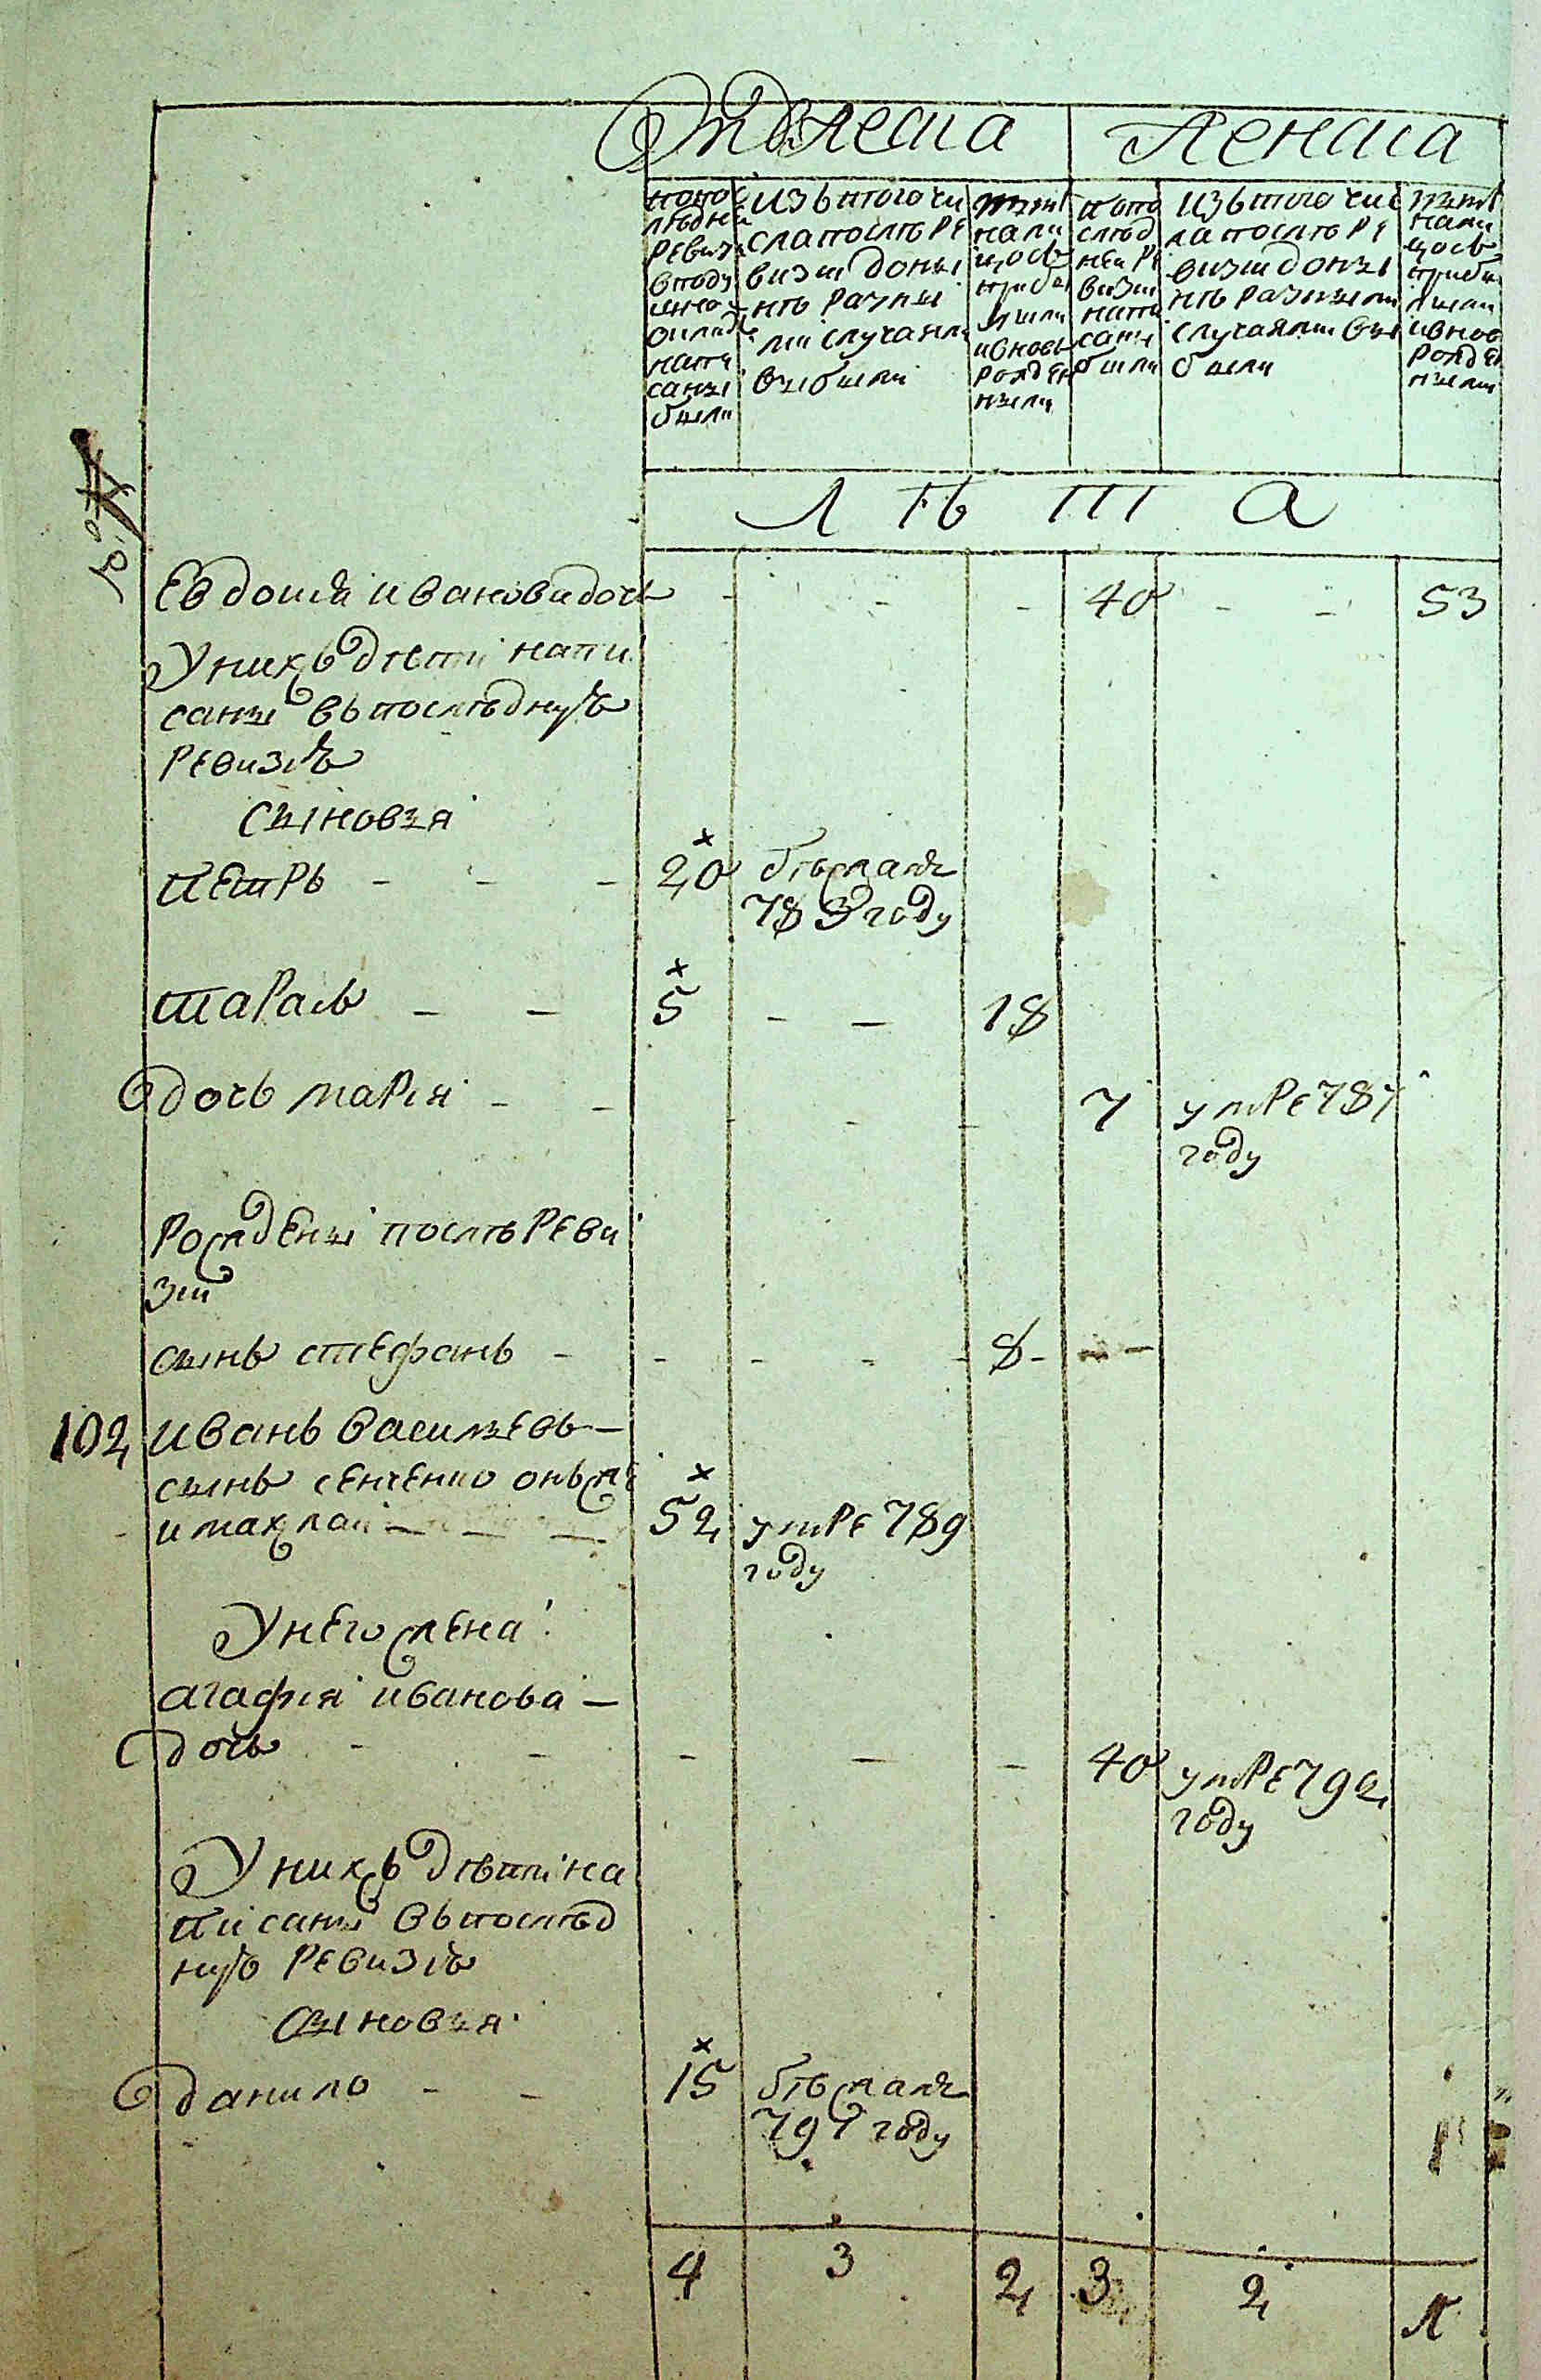 Мужеска
Женска
по по
следней
ревизи
в поду
шной
оклад
напи
саны
были
изъ того чи
сла после ре
визии до ны
не разны
ми случаями
выбыли
ныне
нали
цо съ
прибы
лыми
и вновь
рожден
ными
по по
след
ней ре
визии
напи
саны
были
изъ того чис
ла после ре
визии до ны
не разными
случаями вы
были
ныне
нали
цо съ
прибы
лыми
и вновь
рожден
ными
Л ѣ т а
Евдокия ивановадочь - - - 40 - - 53
Унихъ дѣти напи
саны въ последную
ревизию
сыновья
петръ - - - 20 бѣжалъ
783 году
тарасъ - - 5 - - 18
дочь мария - - - - - 7 умре 787
году
рождены послѣ реви
зии
сынъ стефанъ - - - - - 8 - - -
102 иванъ васильевъ -
сынъ сенченко онъже
и махлай - - - 52 умре 789
году
Унего жена
агафия иванова -
дочь - - - - - 40 умре 792
году
Унихъ дѣти на
писаны въ послѣд
ную ревизию
сыновья
данило - - 15 бѣжалъ
791 году
4 3 2 3 2 1